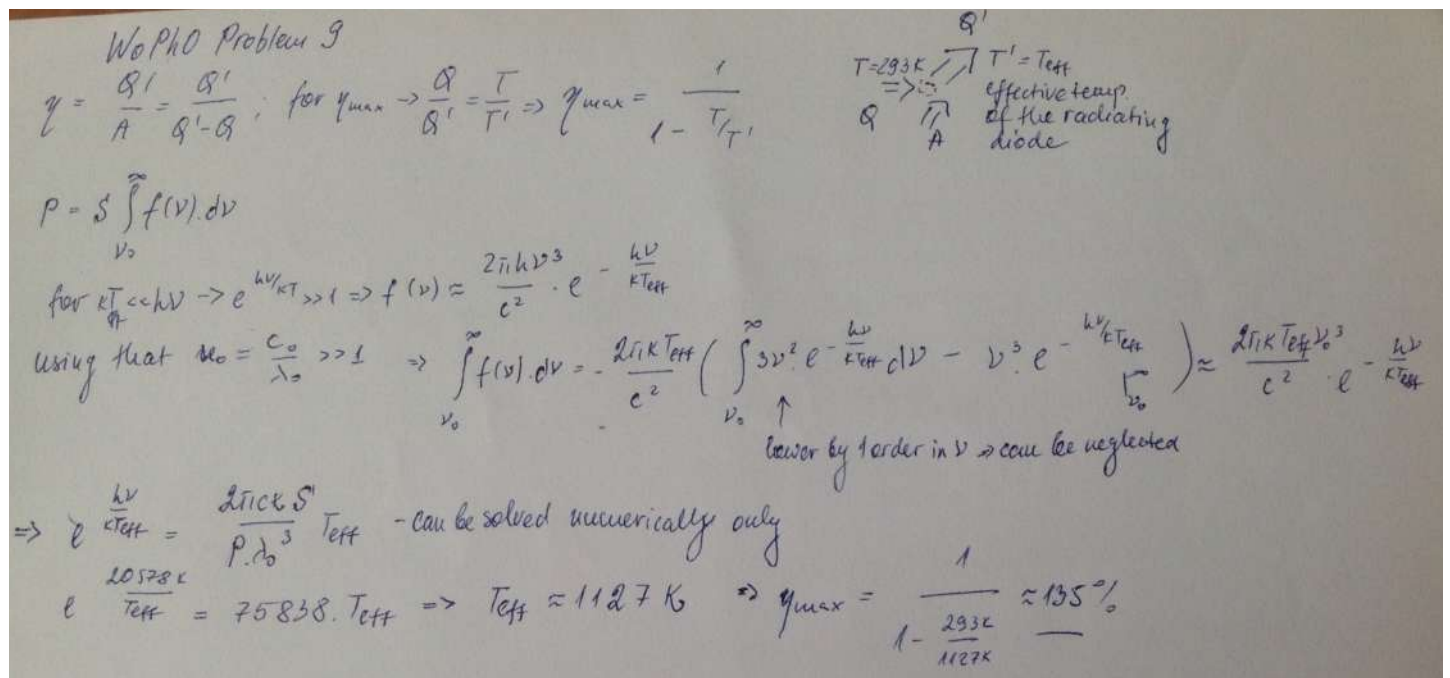 WoPhO Problem 9
η = Q'/A = Q'/(Q'-Q) ; for η max → Q/Q' = T/T' => η max = 1/(1 - T/T')
Q'
T=293K
T' = Teff
=>
effective temp.
Q
of the radiating
A
diode
P = S ∫_{ν₀}^{∞} f(ν).dν
for kTeff << hν → e^{hν/kT} >> 1 => f(ν) ≈ 2πhν³/c² . e^{-hν/kTeff}
using that = c₀/λ₀ >> 1 => ∫_{ν₀}^{∞} f(ν).dν = - 2πkTeff/c² ( ∫_{ν₀}^{∞} 3ν². e^{-hν/kTeff} dν - ν³. e^{-hν/kTeff} |_{ν₀}^{∞} ) ≈ 2πkTeffν₀³/c² . e^{-hν/kTeff}
↑
lower by 1 order in ν => can be neglected
=> e^{hν/kTeff} = 2πckS/(P.λ₀³) Teff - can be solved numerically only
e^{20578K/Teff} = 75838. Teff => Teff ≈ 1127 K => η max = 1/(1 - 293K/1127K) ≈ 135%